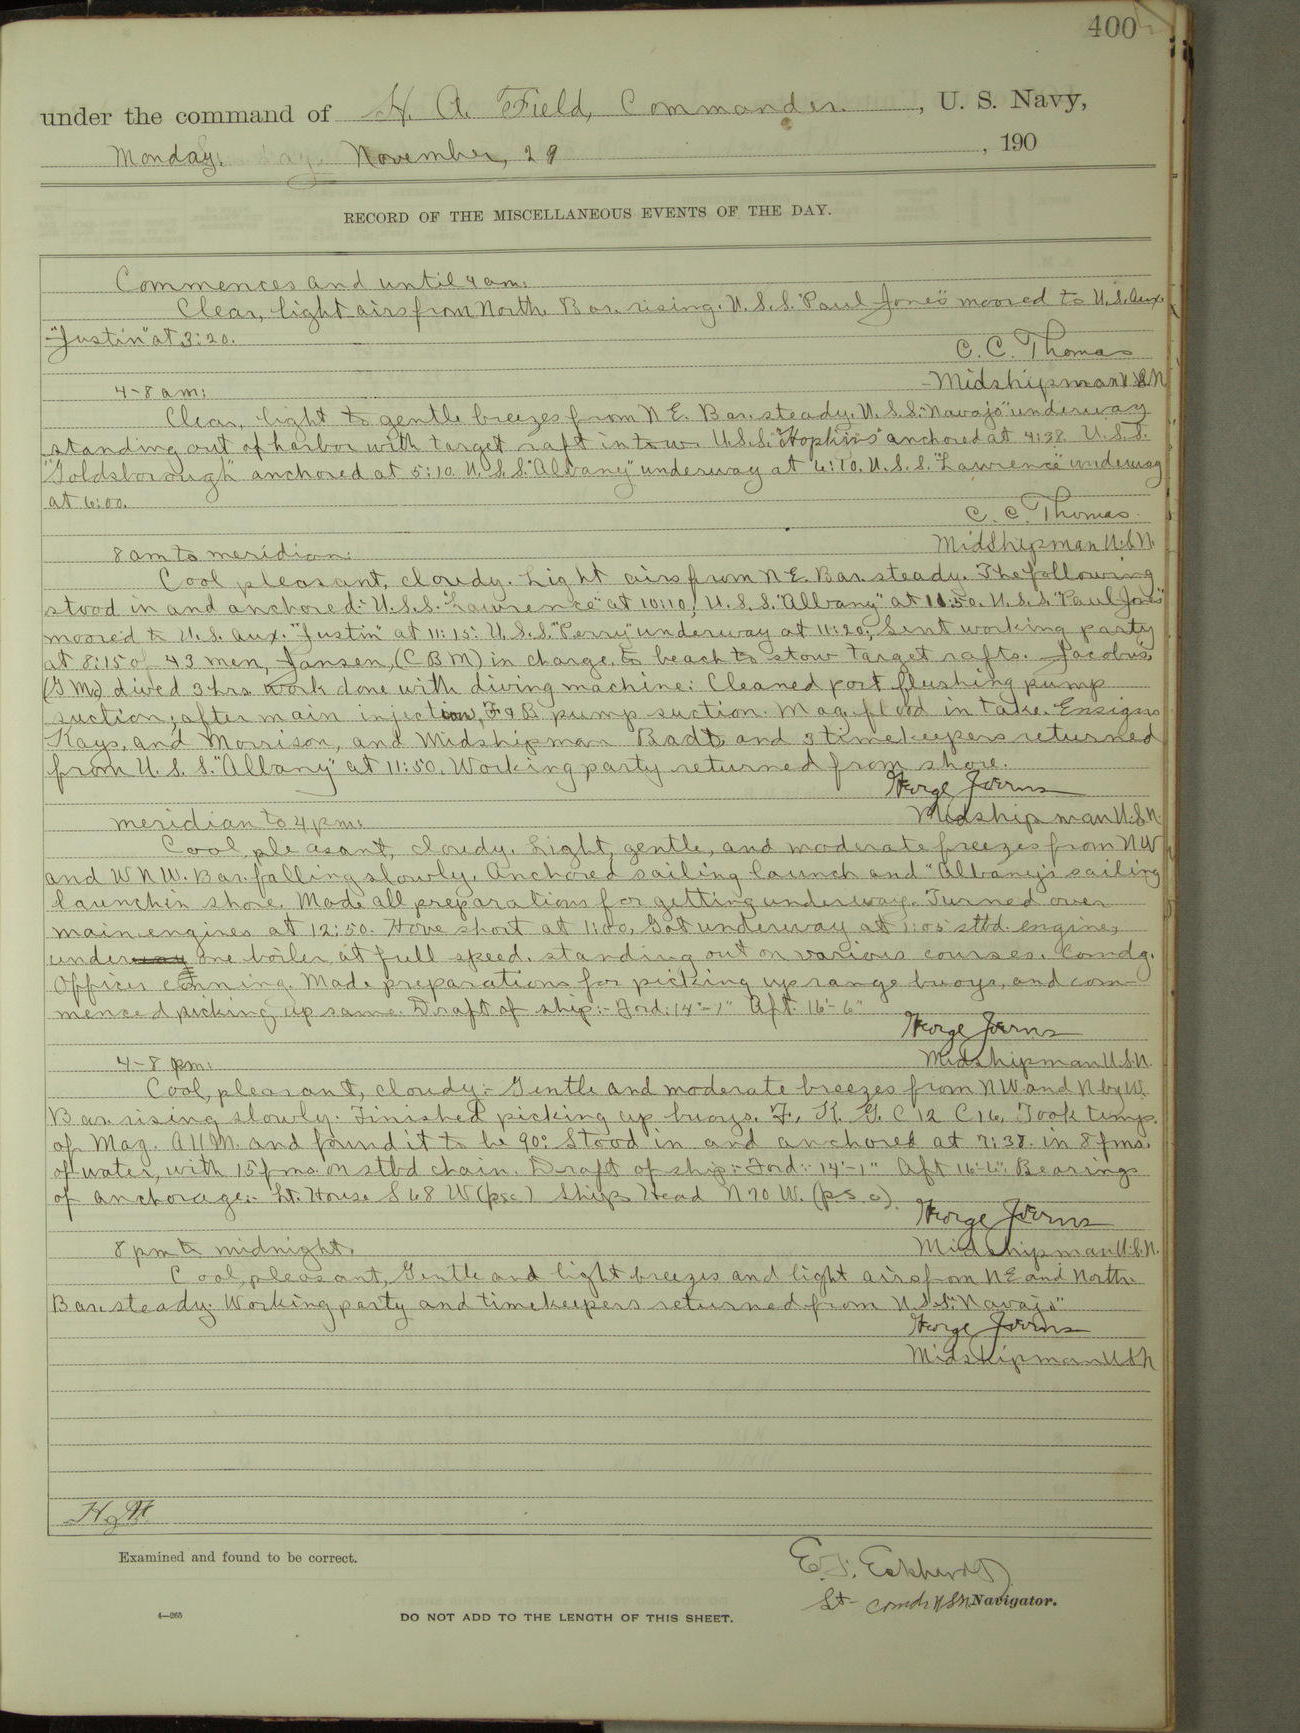 400
under the command of H. A. Field, Commander , U. S. Navy,
Monday. November, 29 , 190
RECORD OF THE MISCELLANEOUS EVENTS OF THE DAY.
Commences and until 4 am:
Clear, light airs from North. Bar. rising. U.S.S. "Paul Jones" moored to U.S. Aux.
"Justin" at 3:20.
C. C. Thomas
Midshipman U.S.N
4-8 am:
Clear, light to gentle breezes from N E. Bar. steady. U.S.S. "Navajo" underway
standing out of harbor with target raft in tow. U.S.S. "Hopkins" anchored at 4:38. U.S.S.
"Goldsborough" anchored at 5:10. U.S.S. "Albany" underway at 6:10. U.S.S. "Lawrence" underway
at 6:00.
C. C. Thomas
Midshipman U.S.N.
8 am to meridian:
Cool, pleasant, cloudy. Light airs from N E. Bar. steady. The following
stood in and anchored:- U.S.S. "Lawrence" at 10:10, U.S.S. "Albany" at 11:50. U.S.S. "Paul Jones"
moored to U.S. Aux. "Justin" at 11:15: U.S.S. "Perry" underway at 11:20: Sent working party
at 8:15 of 43 men, Jansen, (C B M) in charge, to beach to stow target rafts. Jacobus
(G M) dived 3 hrs work done with diving machine: Cleaned port flushing pump
suction, after main injection, F & B pump suction. Mag. flood in take. Ensigns
Kays, and Morrison, and Midshipman Badt, and 3 timekeepers returned
from U.S.S. "Albany" at 11:50. Working party returned from shore.
George Joerns
Midshipman U.S.N.
meridian to 4 pm:
Cool, pleasant, cloudy. Light, gentle, and moderate breezes from N W
and W N W. Bar. falling slowly. Anchored sailing launch and "Albany's" sailing
launch in shore. Made all preparations for getting underway. Turned over
main engines at 12:50. Hove short at 1:00, Got underway at 1:05 stbd. engine,
underway one boiler, at full speed, standing out on various courses. Comdg.
Officer conning. Made preparations for picking up range buoys, and com-
menced picking up same. Draft of ship:- Ford: 14'-1" Aft: 16'-6"
George Joerns
Midshipman U.S.N.
4-8 pm:
Cool, pleasant, cloudy:- Gentle and moderate breezes from N W and N by W.
Bar. rising slowly. Finished picking up buoys. F, K, G, C 12 C 16, Took temp.
of Mag. A 11 M. and found it to be 90°. Stood in and anchored at 7:38. in 8 fms.
of water, with 15 fms. on stbd chain. Draft of ship:- Ford:- 14'-1" Aft 16'-6". Bearings
of anchorage:- Lt. House S 68 W (psc) Ships Head N 70 W. (p s c).
George Joerns
Midshipman U.S.N.
8 pm to midnight.
Cool, pleasant, Gentle and light breezes and light airs from N E and North.
Bar. steady. Working party and timekeepers returned from U.S.S. "Navajo"
George Joerns
Midshipman U S N
Examined and found to be correct.
E. F. Eckhardt
Lt- Comdr U S N Navigator.
4—265
DO NOT ADD TO THE LENGTH OF THIS SHEET.